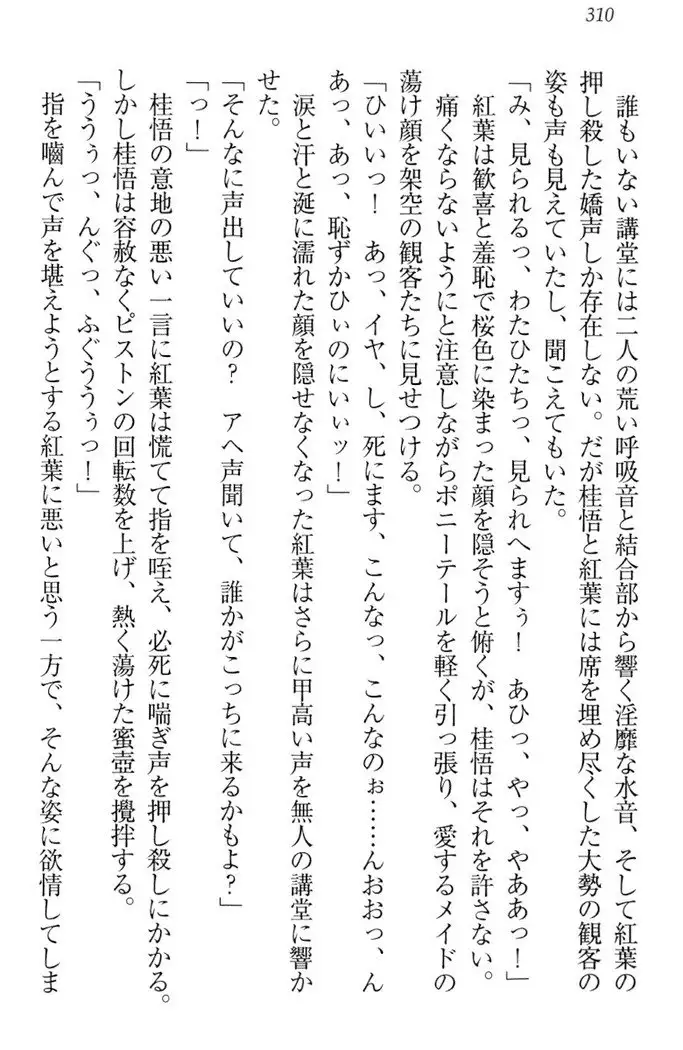 310
誰もいない講堂には二人の荒い呼吸音と結合部から響く淫靡な水音、そして紅葉の
押し殺した嬌声しか存在しない。だが桂悟と紅葉には席を埋め尽くした大勢の観客の
姿も声も見えていたし、聞こえてもいた。
「み、見られるっ、わたひたちっ、見られへますぅ！　あひっ、やっ、やああっ！」
紅葉は歓喜と羞恥で桜色に染まった顔を隠そうと俯くが、桂悟はそれを許さない。
痛くならないようにと注意しながらポニーテールを軽く引っ張り、愛するメイドの
蕩け顔を架空の観客たちに見せつける。
「ひいいっ！　あっ、イヤ、し、死にます、こんなっ、こんなのぉ……んおおっ、ん
あっ、あっ、恥ずかひぃのにいぃッ！」
涙と汗と涎に濡れた顔を隠せなくなった紅葉はさらに甲高い声を無人の講堂に響か
せた。
「そんなに声出していいの？　アヘ声聞いて、誰かがこっちに来るかもよ？」
「っ！」
桂悟の意地の悪い一言に紅葉は慌てて指を咥え、必死に喘ぎ声を押し殺しにかかる。
しかし桂悟は容赦なくピストンの回転数を上げ、熱く蕩けた蜜壺を攪拌する。
「ううぅっ、んぐっ、ふぐううぅっ！」
指を嚙んで声を堪えようとする紅葉に悪いと思う一方で、そんな姿に欲情してしま